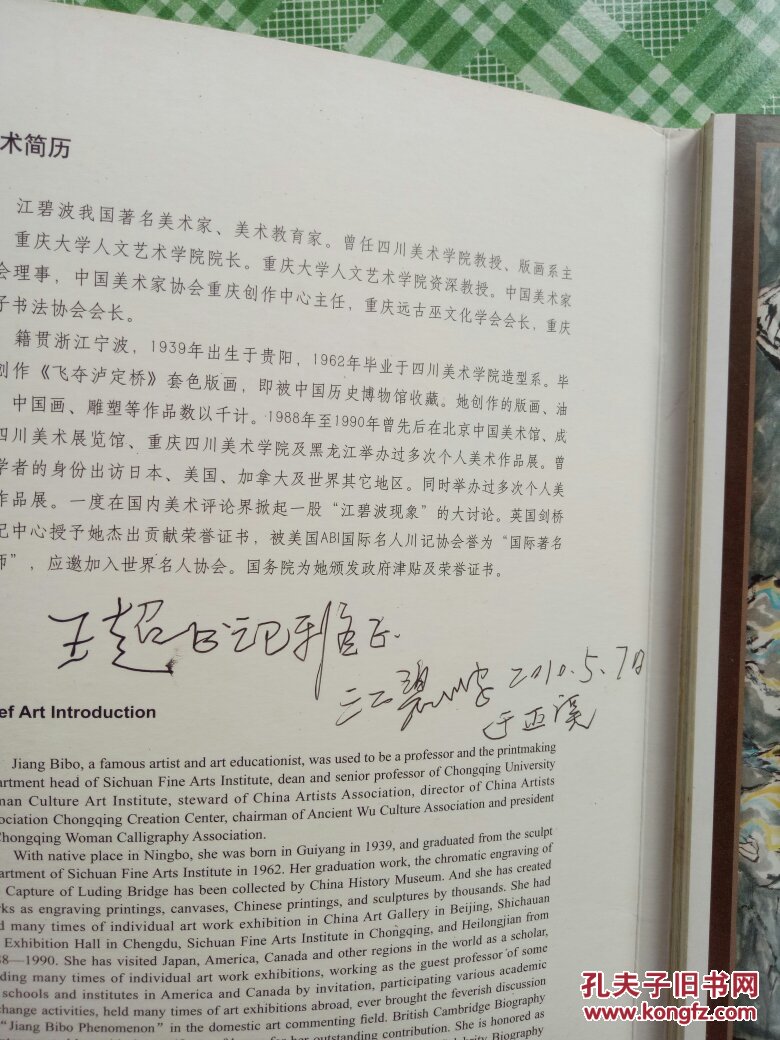 术简历
江碧波我国著名美术家、美术教育家。曾任四川美术学院教授、版画系主
重庆大学人文艺术学院院长。重庆大学人文艺术学院资深教授。中国美术家
会理事，中国美术家协会重庆创作中心主任，重庆远古巫文化学会会长，重庆
子书法协会会长。
籍贯浙江宁波，1939年出生于贵阳，1962年毕业于四川美术学院造型系。毕
创作《飞夺泸定桥》套色版画，即被中国历史博物馆收藏。她创作的版画、油
中国画、雕塑等作品数以千计。1988年至1990年曾先后在北京中国美术馆、成
四川美术展览馆、重庆四川美术学院及黑龙江举办过多次个人美术作品展。曾
学者的身份出访日本、美国、加拿大及世界其它地区。同时举办过多次个人美
作品展。一度在国内美术评论界掀起一股“江碧波现象”的大讨论。英国剑桥
记中心授予她杰出贡献荣誉证书，被美国ABI国际名人川记协会誉为“国际著名
师”，应邀加入世界名人协会。国务院为她颁发政府津贴及荣誉证书。
王超书记雅正
江碧波 2010.5.7日
于巫溪
ef Art Introduction
Jiang Bibo, a famous artist and art educationist, was used to be a professor and the printmaking
artment head of Sichuan Fine Arts Institute, dean and senior professor of Chongqing University
man Culture Art Institute, steward of China Artists Association, director of China Artists
ociation Chongqing Creation Center, chairman of Ancient Wu Culture Association and president
Chongqing Woman Calligraphy Association.
With native place in Ningbo, she was born in Guiyang in 1939, and graduated from the sculpt
artment of Sichuan Fine Arts Institute in 1962. Her graduation work, the chromatic engraving of
Capture of Luding Bridge has been collected by China History Museum. And she has created
rks as engraving printings, canvases, Chinese printings, and sculptures by thousands. She had
d many times of individual art work exhibition in China Art Gallery in Beijing, Shichauan
Exhibition Hall in Chengdu, Sichuan Fine Arts Institute in Chongqing, and Heilongjian from
88—1990. She has visited Japan, America, Canada and other regions in the world as a scholar,
ding many times of individual art work exhibitions, working as the guest professor of some
schools and institutes in America and Canada by invitation, participating various academic
change activities, held many times of art exhibitions abroad, ever brought the feverish discussion
“Jiang Bibo Phenomenon” in the domestic art commenting field. British Cambridge Biography
her outstanding contribution. She is honored as
Biography
孔夫子旧书网
www.kongfz.com